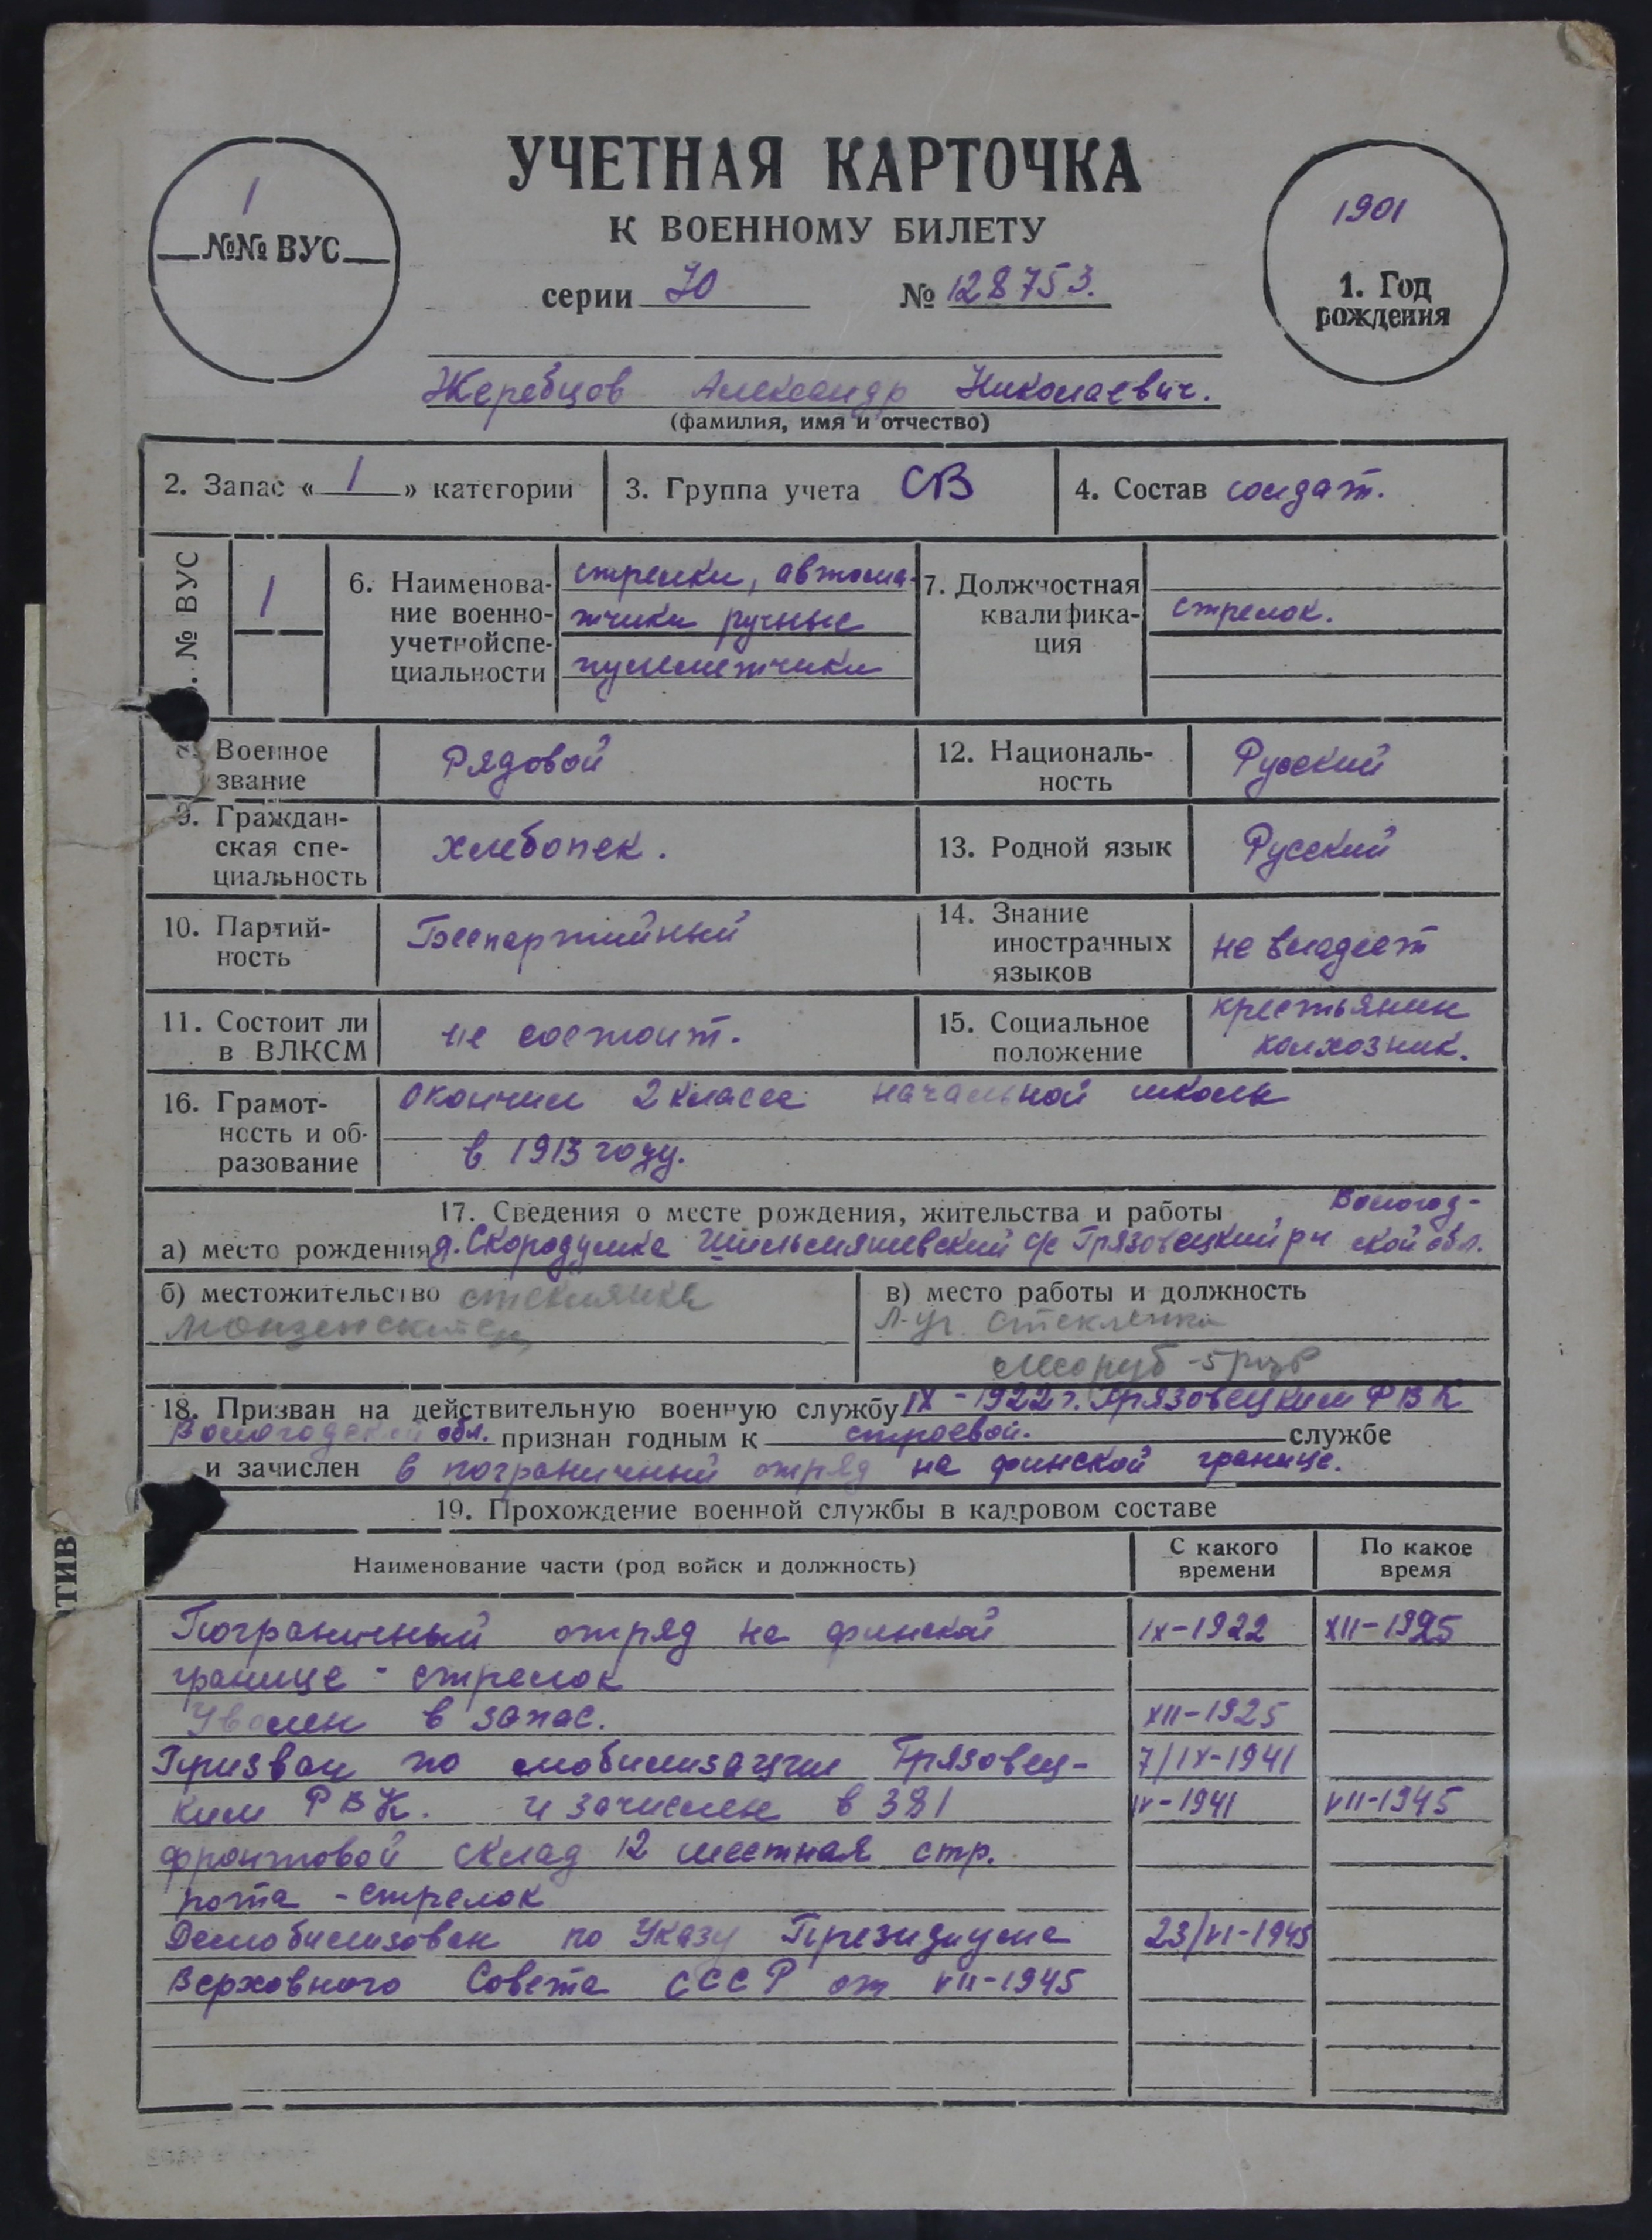 УЧЕТНАЯ КАРТОЧКА
К ВОЕННОМУ БИЛЕТУ
1
№№ ВУС
1901
1. Год рождения
серии Ю № 128753.
Жеребцов Александр Николаевич.
(фамилия, имя и отчество)
2. Запас « 1 » категории
3. Группа учета СВ
4. Состав солдат.
. № ВУС
1
6. Наименова-
ние военно-
учетной спе-
циальности
стрелки, автома-
тчики ручные
пулеметчики
7. Должностная
квалифика-
ция
стрелок.
Военное
звание
Рядовой
12. Националь-
ность
Русский
9. Граждан-
ская спе-
циальность
хлебопек.
13. Родной язык
Русский
10. Партий-
ность
Беспартийный
14. Знание
иностранных
языков
не владеет
11. Состоит ли
в ВЛКСМ
не состоит.
15. Социальное
положение
крестьянин
колхозник.
16. Грамот-
ность и об-
разование
окончил 2 класса начальной школы
в 1913 году.
17. Сведения о месте рождения, жительства и работы
Вологод-
а) место рождения д. Скородумка с/с Грязовецкий рн ской обл.
б) местожительство стеклянка
в) место работы и должность
Л-уч. стеклянка
лесоруб - 5
18. Призван на действительную военную службу IX - 1922 г. Грязовецким РВК
Вологодской обл. признан годным к строевой. службе
и зачислен в пограничный отряд на финской границе.
19. Прохождение военной службы в кадровом составе
Наименование части (род войск и должность)
С какого
времени
По какое
время
Пограничный отряд на финской IX-1922 XII-1925
границе - стрелок
Уволен в запас. XII-1925
Призван по мобилизации Грязовец- 7/IX-1941
ким РВК. и зачислен в 381 IX-1941 VII-1945
фронтовой склад 12 местная стр.
рота - стрелок
Демобилизован по Указу Президиума 23/VI-1945
Верховного Совета СССР от VII-1945
ТИВ